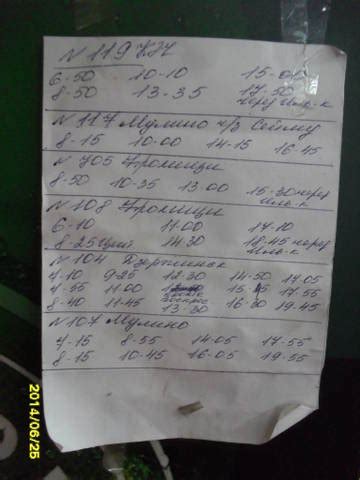 N 119 КЖ
6-50 10-10 15-05
8-50 13-35 17-50
через Иль-к
N 117 Мулино ч/з Сейму
8-15 10-00 14-15 16-45
N 105 Фролищи
8-50 10-35 13-00 15-30 через
Иль-к
N 108 Фролищи
6-10 11-00 17-10
8-25 14-30 18-45 через
Иль-к
N 104 Дзержинск
7-10 9-25 12-30 14-50 17-05
7-55 11-00 15-45 17-55
8-40 11-45 13-30 16-30 19-45
N 107 Мулино
7-15 8-55 14-05 17-55
8-15 10-45 16-05 19-55
2014/06/25